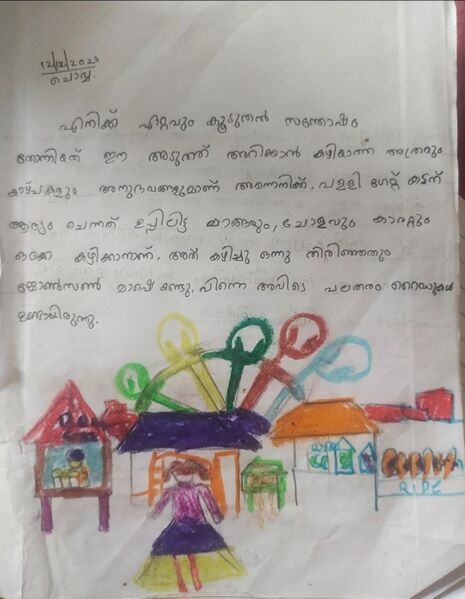 12/2/2023
ചൊവ്വ.
എനിക്ക് ഏറ്റവും കൂടുതൽ സന്തോഷം
തോന്നിയത് ഈ അടുത്ത് മറിക്കാൻ കഴിയാത്ത അത്രയും
കാഴ്ചകളും അനുഭവങ്ങളുമാണ് അന്നെനിക്ക്. പള്ളി ഗേറ്റ് കടന്ന്
ആദ്യം ചെന്നത് ഉപ്പിലിട്ട മാങ്ങയും, ചോളവും കാരറ്റും
ഒക്കെ കഴിക്കാനാണ്. അത് കഴിച്ചു ഒന്നു തിരിഞ്ഞതും
ജോൺസൺ മാഷെ കണ്ടു. പിന്നെ അവിടെ പലതരം റൈഡുകൾ
ഉണ്ടായിരുന്നു.
RIDE